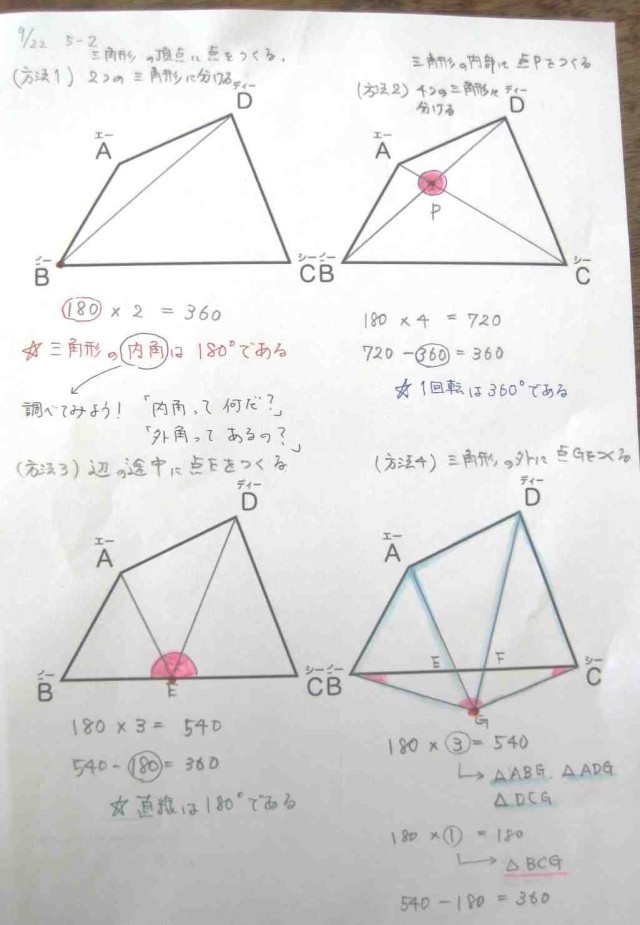 9/22 5-2
三角形の頂点に点をつくる。
(方法1) 2つの三角形に分ける
エー
A
ディー
D
ビー
B
シー
C
180 × 2 = 360
☆三角形の内角は180°である
調べてみよう! 「内角って何だ?」
「外角ってあるの?」
三角形の内部に点Pをつくる
(方法2) 4つの三角形に
分ける
エー
A
ディー
D
P
B
シー
C
180 × 4 = 720
720 - 360 = 360
☆1回転は360°である
(方法3) 辺の途中に点Eをつくる
エー
A
ディー
D
ビー
B
E
シー
C
180 × 3 = 540
540 - 180 = 360
☆直線は180°である
(方法4) 三角形の外に点Gをつくる
エー
A
ディー
D
ビー
B
E
F
シー
C
G
180 × 3 = 540
→ △ABG, △ADG
△DCG
180 × 1 = 180
→ △BCG
540 - 180 = 360